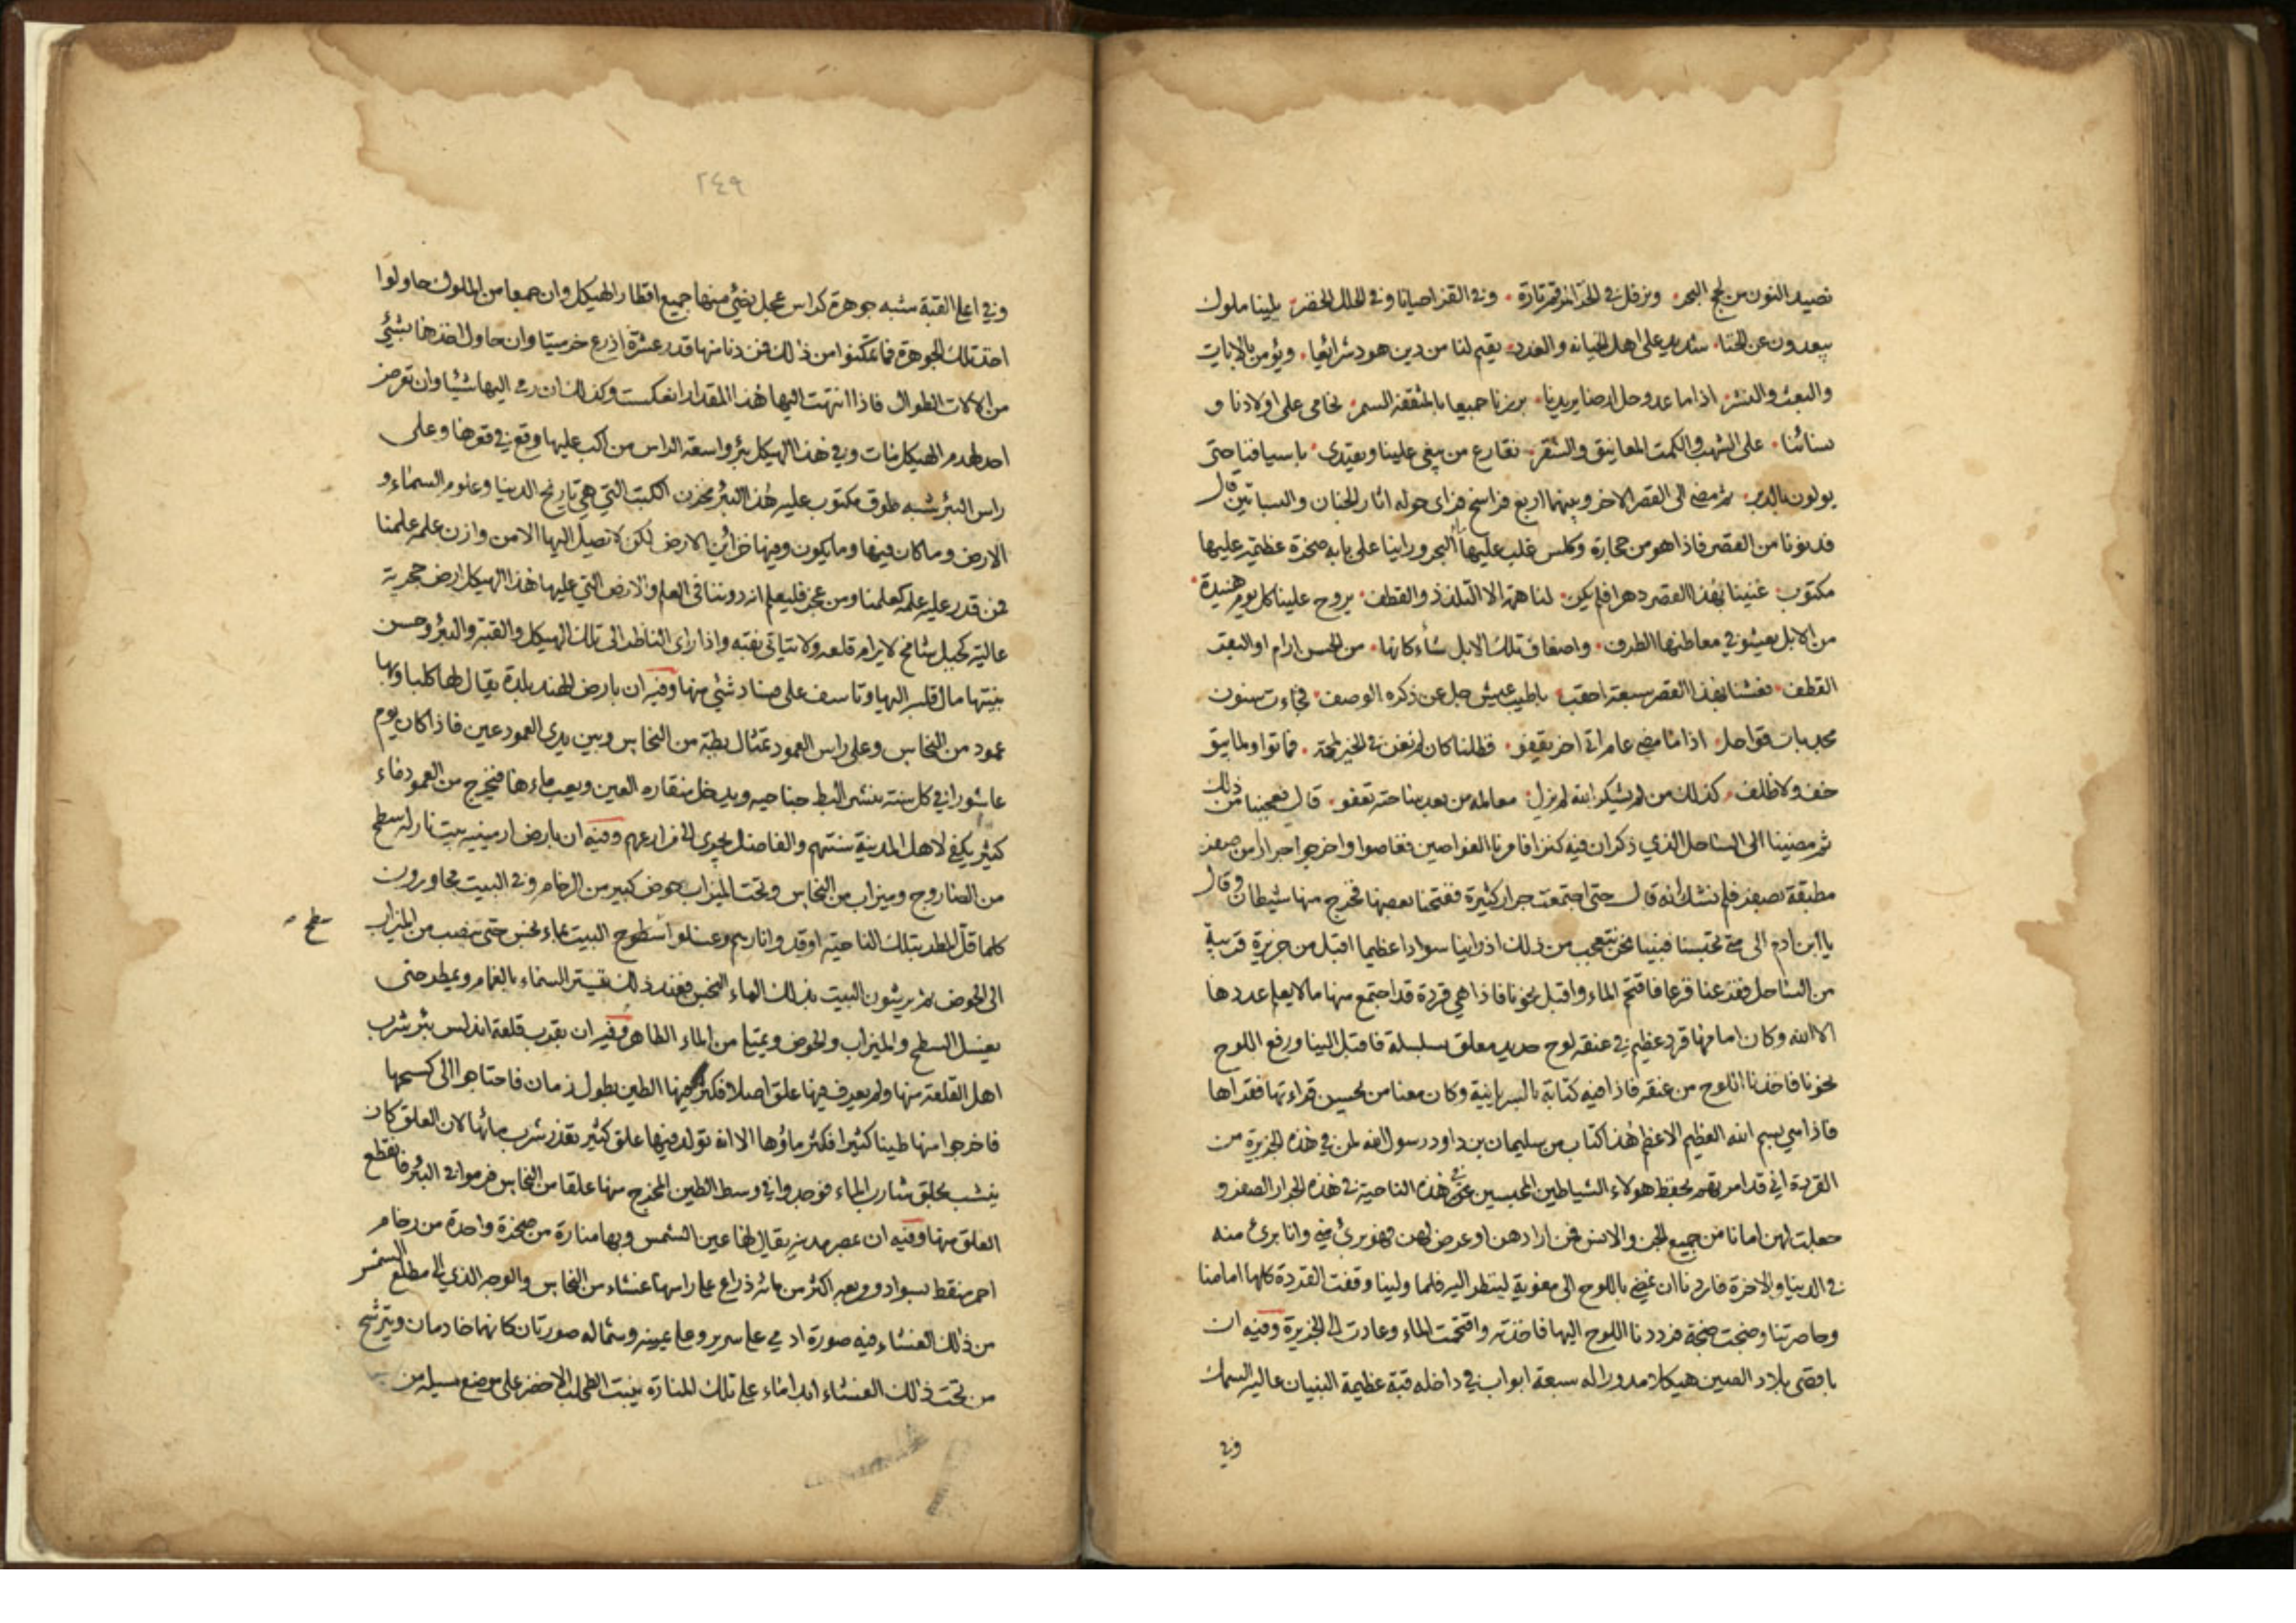 نصيد النون من لجج البحر ونرفل في الخز المرقم تارة وفي القز احيانا وفي الحلل الخضر يلينا ملوك
يبعدون عن الخنا شديد على اهل الخيانة والغدر يقيم لنا من دين هود شرائعا ويؤمن بالايات
والبعث والنشر اذا ما عدو حل ارضنا يريدنا برزنا جميعا بالمثقفة السمر نحامي على اولادنا و
نسائنا على الشهب والكمت المعانيق والشقر نقارع من يبغي علينا ويعتدي باسيافنا حتى
يولون بالدبر ثم مضى الى القصر الاخر وبينهما اربع فراسخ فراى حوله اثار الجنان والبساتين قال
فدنونا من القصر فاذا هو من حجارة وكلس غلب عليها البحر وراينا على بابه صخرة عظيمة عليها
مكتوب غنينا بهذا القصر دهرا فلم يكن لنا همة الا التلذذ والقطف يروح علينا كل يوم هنيدة
من الابل يعشو في معاطنها الطرف واضعاف تلك الابل شاء كانها من الحسن ارام او البقر
القطف فعشنا بهذا القصر سبعة احقب باطيب عيش جل عن ذكره الوصف فجاءت سنون
مجدبات قواحل اذا ما مضى عام اتى اخر يقفو فظلنا كان لم نغن في الخير لمحة فماتوا ولم يبق
خف ولا ظلف كذلك من لم يشكر الله لم يزل معالمه من بعد ساحته تعفو قال فعجبنا من ذلك
ثم مضينا الى الساحل الذي ذكر ان فيه كنزا فامرنا الغواصين فغاصوا واخرجوا جرارا من صفر
مطبقة بصفر فلم نشك انه قال حتى اجتمعت جرار كثيرة ففتحنا بعضها فخرج منها شيطان وقال
يا ابن ادم الى متى تحبسنا فبينا نحن نتعجب من ذلك اذ راينا سوادا عظيما اقبل من جزيرة قريبة
من الساحل ففزعنا فزعا فاقتحم الماء واقبل نحونا فاذا هي قردة قد اجتمع منها ما لا يعلم عددها
الا الله وكان امامها قرد عظيم في عنقه لوح حديد معلق بسلسلة فاقبل الينا ورفع اللوح
نحونا فاخذنا اللوح من عنقه فاذا فيه كتابة بالسريانية وكان معنا من يحسن قراءتها فقراها
فاذا هي بسم الله العظيم الاعظم هذا كتاب من سليمان بن داود رسول الله لمن في هذه الجزيرة من
القردة اني قد امرتهم بحفظ هولاء الشياطين المحبسين في هذه الناحية في هذه الجرار الصفر و
جعلت لهن امانا من جميع الجن والانس فمن ارادهن او عرض لهن فهو بريء مني وانا بريء منه
في الدنيا والاخرة فاردنا ان نمضي باللوح الى معوية لينظر اليه فلما ولينا وقفت القردة كلها امامنا
وحاصرتنا وضجت ضجة فرددنا اللوح اليها فاخذته واقتحمت الماء وعادت الى الجزيرة وفيه ان
باقصى بلاد الصين هيكلا مدورا له سبعة ابواب في داخله قبة عظيمة البنيان عالية السمك
وفي
٢٤٩
وفي اعلى القبة شبه جوهرة كراس عجل يضيء منها جميع اقطار الهيكل وان جمعا من الملوك حاولوا
اخذ تلك الجوهرة فما تمكنوا من ذلك فمن دنا منها قدر عشرة اذرع خر ميتا وان حاول اخذها بشيء
من الالات الطوال فاذا انتهت اليها هذا المقدار انعكست وكذلك ان رمى اليها شيئا وان تعرض
احد لهدم الهيكل مات وفي هذا الهيكل بئر واسعة الراس من اكب عليها وقع في قعرها وعلى
راس البئر شبه طوق مكتوب عليه هذا البئر مخزن الكتب التي هي تاريخ الدنيا وعلوم السماء و
الارض وما كان فيها وما يكون وفيها خزائن الارض لكن لا تصل اليها الا من وازن علمه علمنا
فمن قدر عليه علمه كعلمنا ومن عجز فليعلم انه دوننا في العلم والارض التي عليها هذا الهيكل ارض حجرية
عالية كجبل شامخ لا يرام قلعه ولا يتاتى نقبه واذا راى الناظر الى تلك الهيكل والقبة والبئر وحسن
بنيتها مال قلبه اليها وتاسف على فساد شيء منها وفيه ان بارض الهند بلدة يقال لها كلبا وبها
عمود من النحاس وعلى راس العمود تمثال بطة من النحاس وبين يدي العمود عين فاذا كان يوم
عاشورا في كل سنة ينشر البط جناحيه ويدخل منقاره العين ويعب ماءها فيخرج من العمود ماء
كثير يكفي لاهل المدينة سنتهم والفاضل يجري الى مزارعهم وفيه ان بارض ارمينيه بيت نار له سطح
من الصاروج وميزاب من النحاس وتحت الميزاب حوض كبير من الرخام وفي البيت مجاورون
كلما قل المطر بتلك الناحية اوقدوا نارهم وغسلوا سطوح البيت بماء نجس حتى ينصب من الميزاب
سطح
الى الحوض ثم يرشون البيت بذلك الماء النجس فعند ذلك يستر السماء بالغمام ويمطر حتى
يغسل السطح والميزاب والحوض ويمتلي من الماء الطاهر وفيه ان بقرب قلعة اندلس بئر شرب
اهل القلعة منها ولم يعرف فيها علق اصلا فكثر فيها الطين بطول زمان فاحتاجوا الى كسحها
فاخرجوا منها طينا كثيرا فكثر ماؤها الا انه تولد فيها علق كثير تعذر شرب مائها لان العلق كان
ينشب بحلق شارب الماء فوجدوا في وسط الطين المخرج منها علقا من النحاس فرموا في البئر فانقطع
العلق منها وفيه ان بمصر مدينة يقال لها عين الشمس وبها منارة من صخرة واحدة من رخام
احمر منقط بسواد ومربعه اكثر من مائة ذراع على راسها غشاء من النحاس والوجه الذي الى مطلع الشمس
من ذلك الغشاء فيه صورة ادمي على سرير وعلى يمينه وشماله صورتان كانهما خادمان ويترشح
من تحت ذلك الغشاء ابدا ماء على تلك المنارة ينبت الطحلب الاخضر على موضع مسيله من